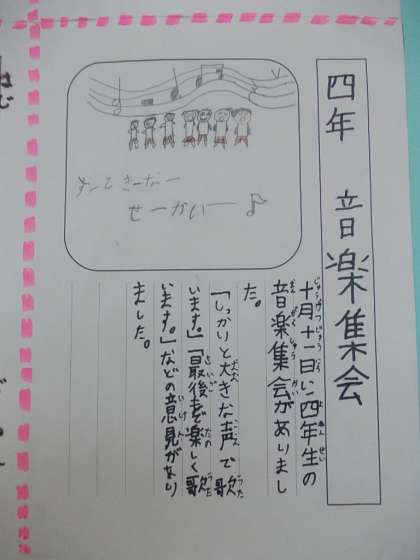 四年 音楽集会
十月十一日に四年生の
音楽集会がありまし
た。
「しっかりと大きな声で歌
います。」「最後まで楽しく歌
います。」などの意見があり
ました。
すーてきーなー
せーかいー♪